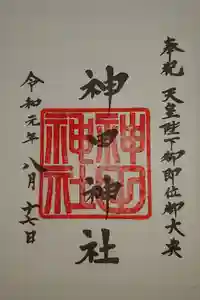 奉祝 天皇陛下御即位御大典
神田神社
神田神社
令和元年 八月 十七日